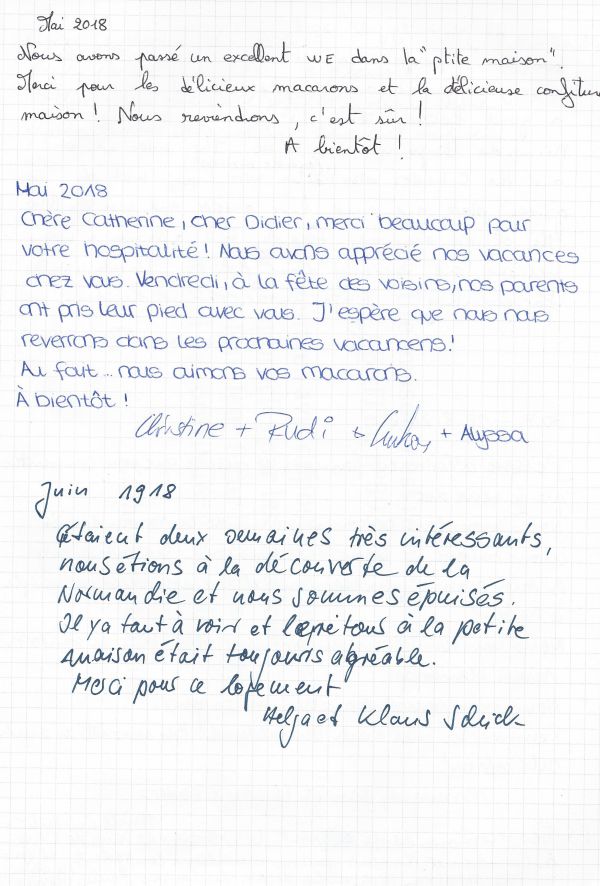 Mai 2018
Nous avons passé un excellent WE dans la "ptite maison".
Merci pour les délicieux macarons et la délicieuse confiture
maison ! Nous reviendrons, c'est sûr !
A bientôt !
Mai 2018
Chère Catherine, cher Didier, merci beaucoup pour
votre hospitalité ! Nous avons apprécié nos vacances
chez vous. Vendredi, à la fête des voisins, nos parents
ont pris leur pied avec vous. J'espère que nous nous
reverrons dans les prochaines vacancens!
Au fait... nous aimons vos macarons.
À bientôt !
Christine + Rudi + Lukas + Alyssa
Juin 1918
Étaient deux semaines très intéressants,
nous étions à la découverte de la
Normandie et nous sommes épuisés.
Il y a tant à voir et à la petite
maison était toujours agréable.
Merci pour ce logement
Helga et Klaus